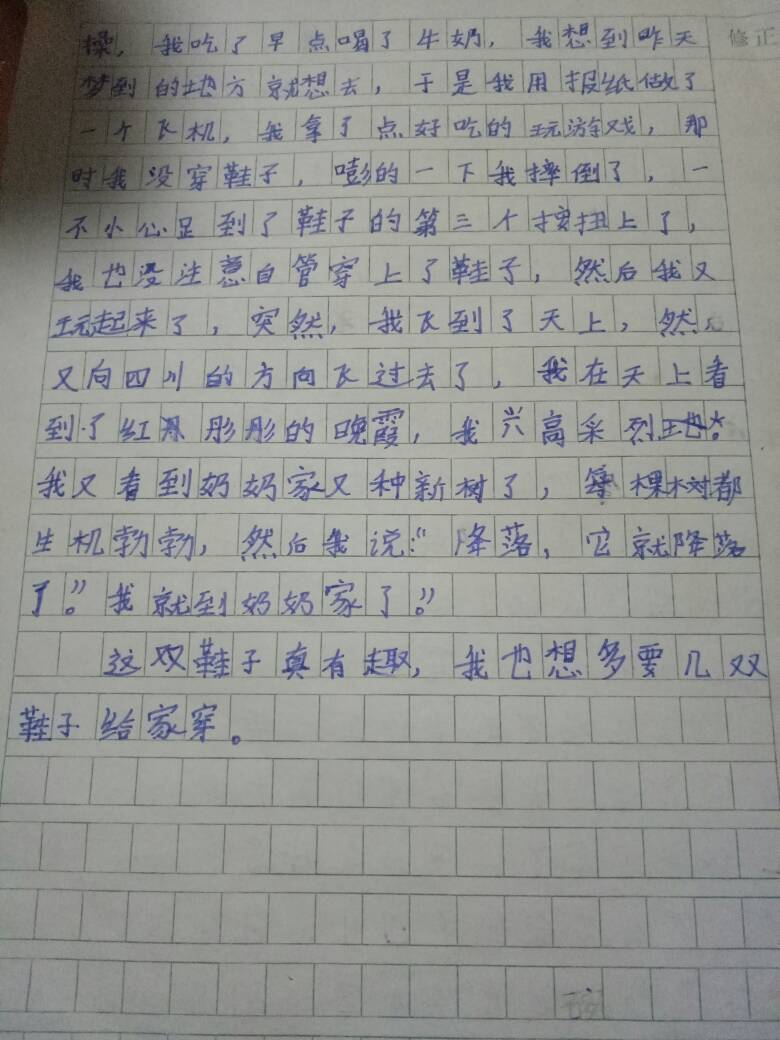 操，我吃了早点喝了牛奶，我想到昨天
修正
梦到的地方就想去，于是我用报纸做了
一个飞机，我拿了点好吃的玩游戏，那
时我没穿鞋子，嘭的一下我摔倒了，一
不小心足到了鞋子的第三个按扭上了，
我也没注意自管穿上了鞋子，然后我又
玩起来了，突然，我飞到了天上，然后
又向四川的方向飞过去了，我在天上看
到了红彤彤的晚霞，我兴高采烈地。
我又看到奶奶家又种新树了，每棵树都
生机勃勃，然后我说：“降落，它就降落
了。”我就到奶奶家了。”
这双鞋子真有趣，我也想多要几双
鞋子给家穿。